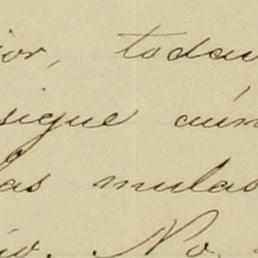 ior, todav
sigue aún
as mulas
io. No.